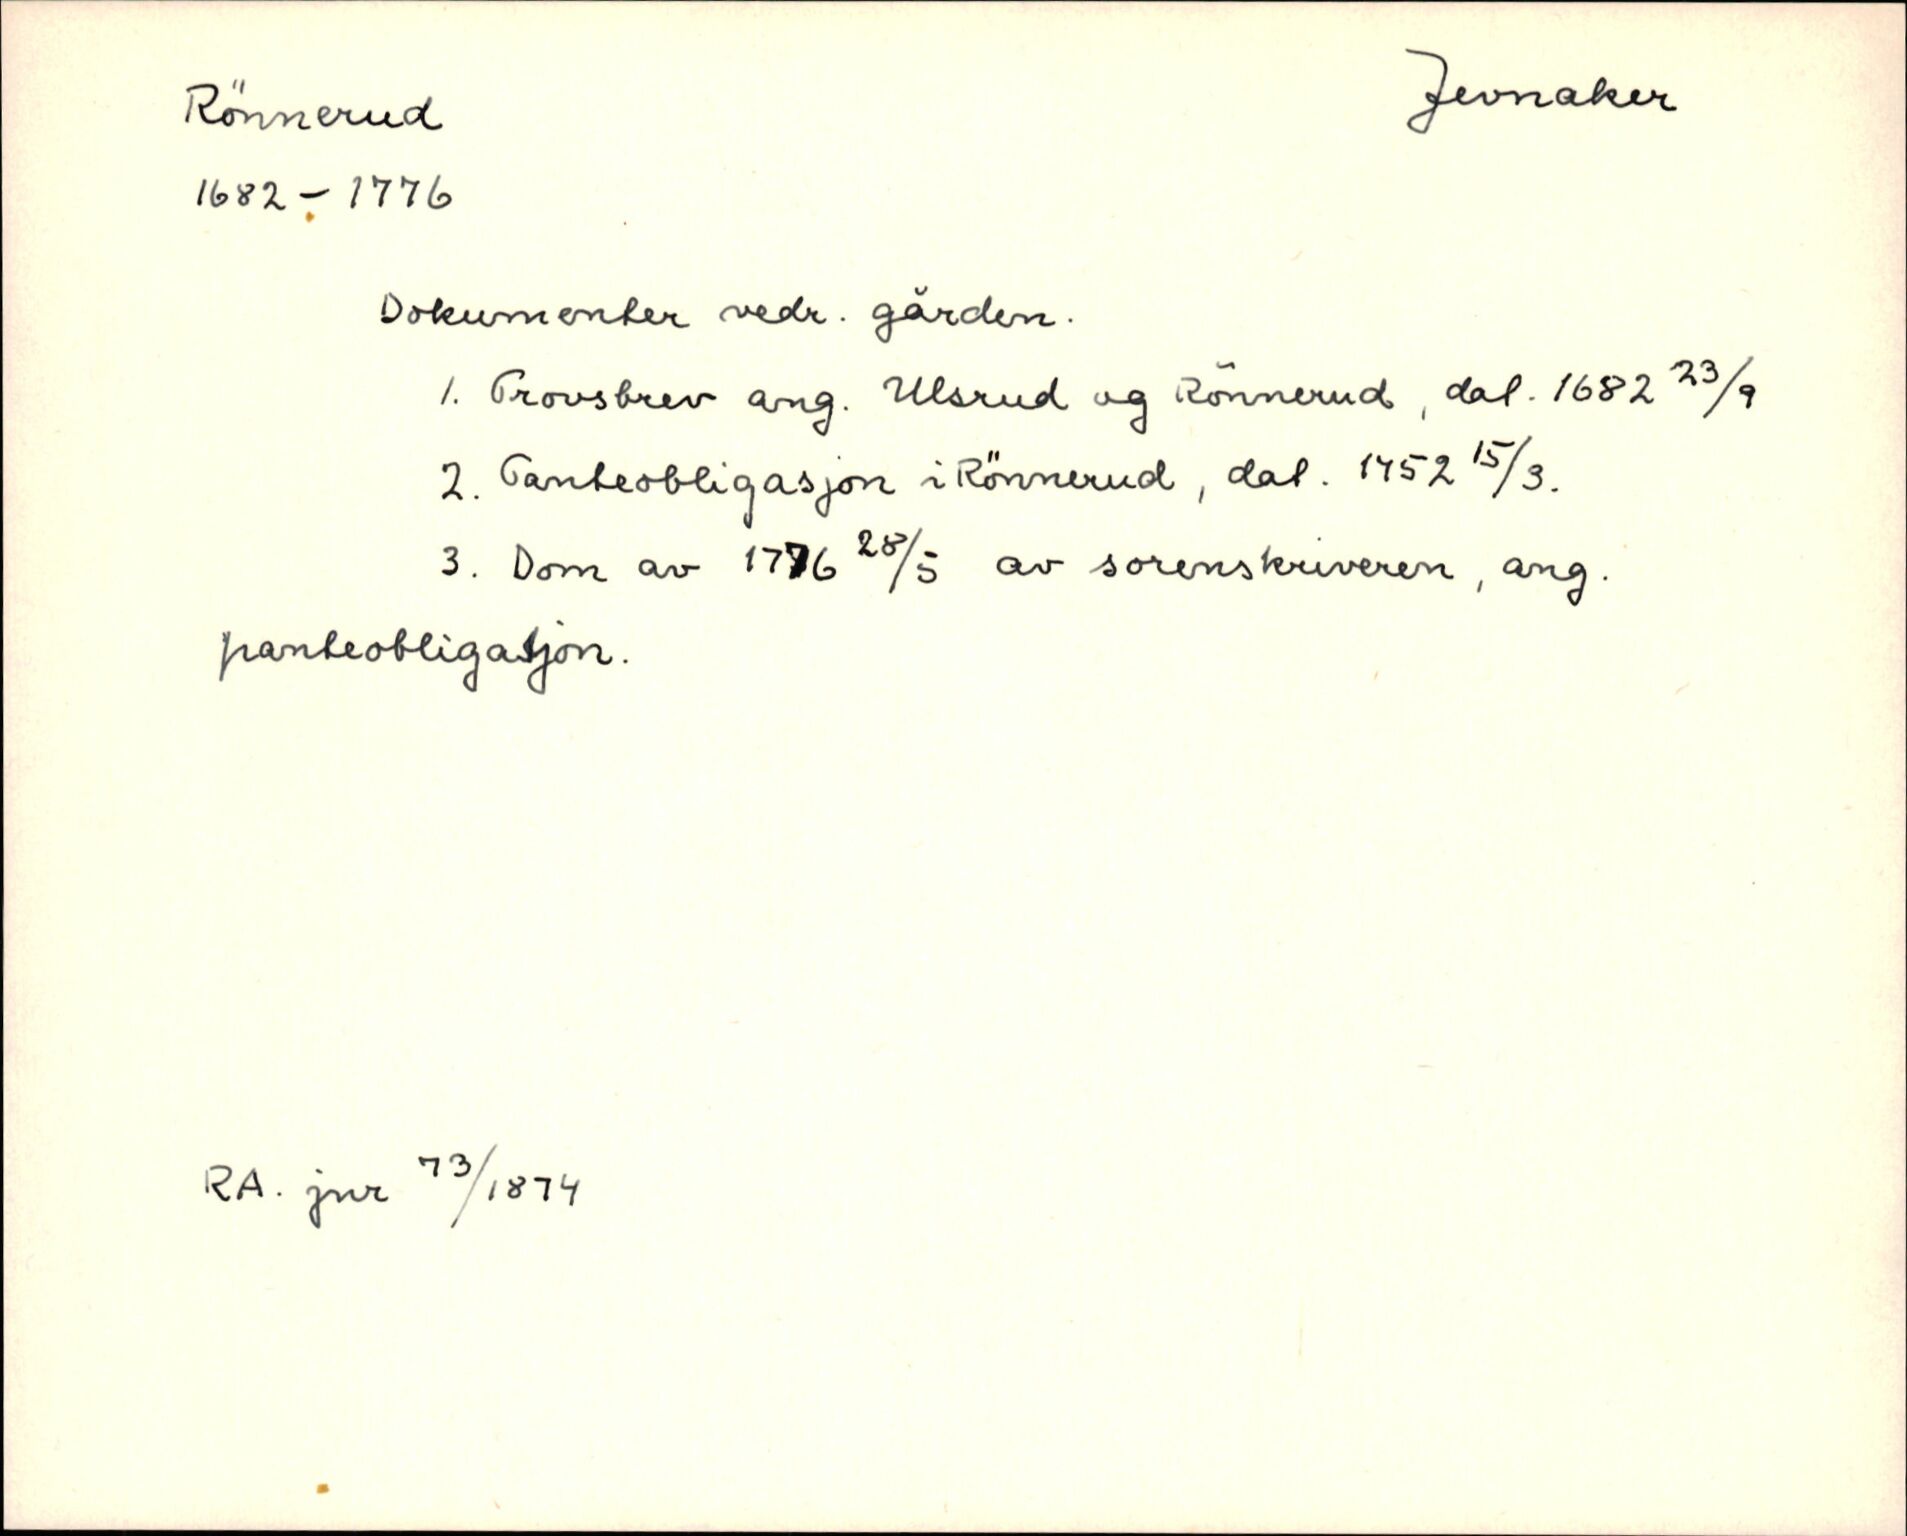 Rönnerud
Jevnaker
1682 - 1776
Dokumenter vedr. gården.
1. Provsbrev ang. Ulsrud og Rönnerud, dat. 1682 23/9
2. Panteobligasjon i Rönnerud, dat. 1752 15/3.
3. Dom av 1776 28/5 av sorenskriveren, ang.
panteobligasjon.
RA. jnr 73/1874